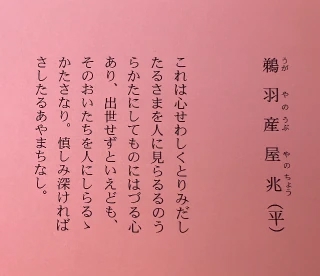 鵜羽産屋兆(平)
うがやのうぶやのちょう
これは心せわしくとりみだし
たるさまを人に見らるるのう
らかたにしてものにはづる心
あり、出世せずといえども、
そのおいたちを人にしらるゝ
かたさなり。慎しみ深ければ
さしたるあやまちなし。